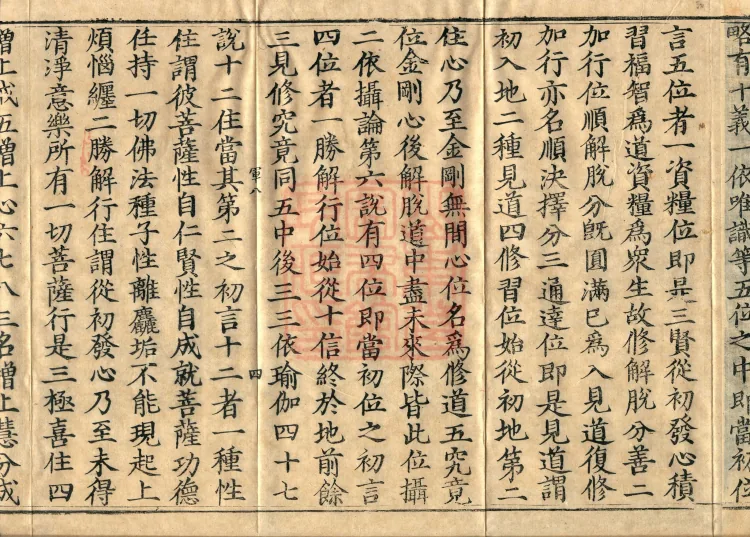 略有十義一依唯識等五位之中即當初位
言五位者一資糧位即是三賢從初發心積
習福智為道資糧為衆生故修解脫分善二
加行位順解脫分旣圓滿已為入見道復修
加行亦名順決擇分三通達位即是見道謂
初入地二種見道四修習位始從初地第二
住心乃至金剛無間心位名為修道五究竟
位金剛心後解脫道中盡未來際皆此位攝
二依攝論第六說有四位即當初位之初言
四位者一勝解行位始從十信終於地前餘
三見修究竟同五中後三三依瑜伽四十七
軍八
四
說十二住當其第二之初言十二者一種性
住謂彼菩薩性自仁賢性自成就菩薩功德
任持一切佛法種子性離麤垢不能現起上
煩惱纏二勝解行住謂從初發心乃至未得
清淨意樂所有一切菩薩行是三極喜住四
增上戒五增上心六七八三名增上慧分成